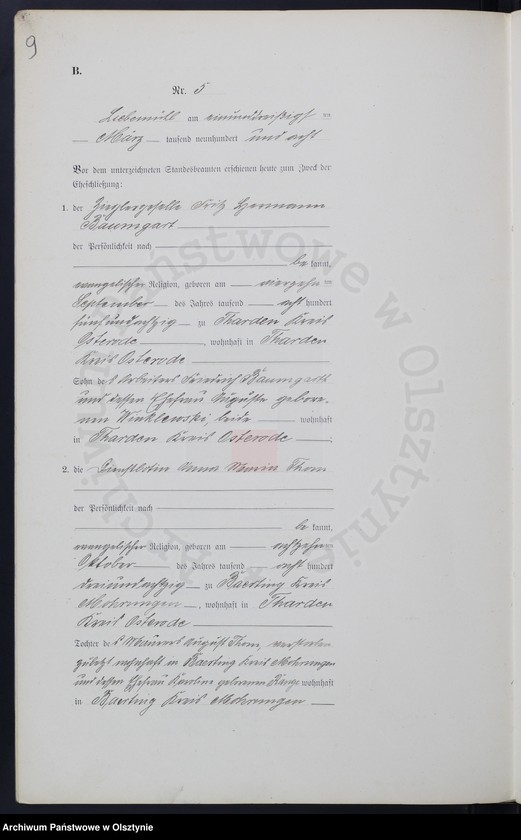 9
B.
Nr. 5
Liebemühl am einunddreißigsten
März tausend neunhundert und acht
Vor dem unterzeichneten Standesbeamten erschienen heute zum Zweck der
Eheschließung:
1. der Zieglergeselle Fritz Hermann
Baumgart
der Persönlichkeit nach
be kannt,
evangelischer Religion, geboren am vierzehnten
September des Jahres tausend acht hundert
fünfundachtzig zu Tharden Kreis
Osterode, wohnhaft in Tharden
Kreis Osterode
Sohn des Arbeiters Friedrich Baumgarth
und dessen Ehefrau Auguste gebore-
nen Winklewski, beide wohnhaft
in Tharden Kreis Osterode;
2. die Dienstbotin Anna Maria Thom
der Persönlichkeit nach
be kannt,
evangelischer Religion, geboren am achtzehnten
Oktober des Jahres tausend acht hundert
dreiundachtzig zu Baerting Kreis
Mohrungen, wohnhaft in Tharden
Kreis Osterode
Tochter des Maurers August Thom, verstorben
zuletzt wohnhaft in Baerting Kreis Mohrungen
und dessen Ehefrau Karoline geborenen wohnhaft
in Baerting Kreis Mohrungen
Archiwum Państwowe w Olsztynie
Archiwum Państwowe w Olsztynie